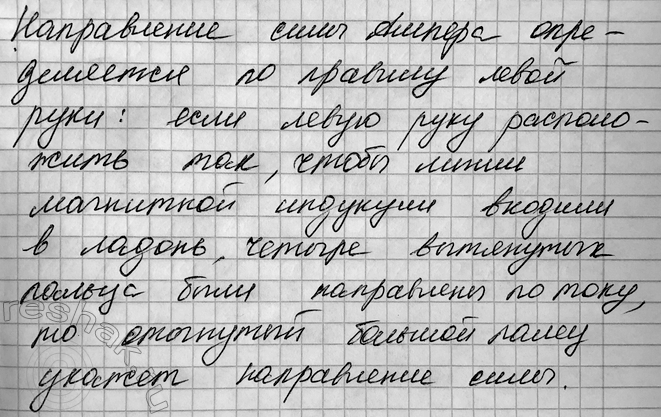 Направление силы Ампера опре-
деляется по правилу левой
руки: если левую руку располо-
жить так, чтобы линии
магнитной индукции входили
в ладонь, четыре вытянутых
пальца были направлены по току,
то отогнутый большой палец
укажет направление силы.
reshak.ru